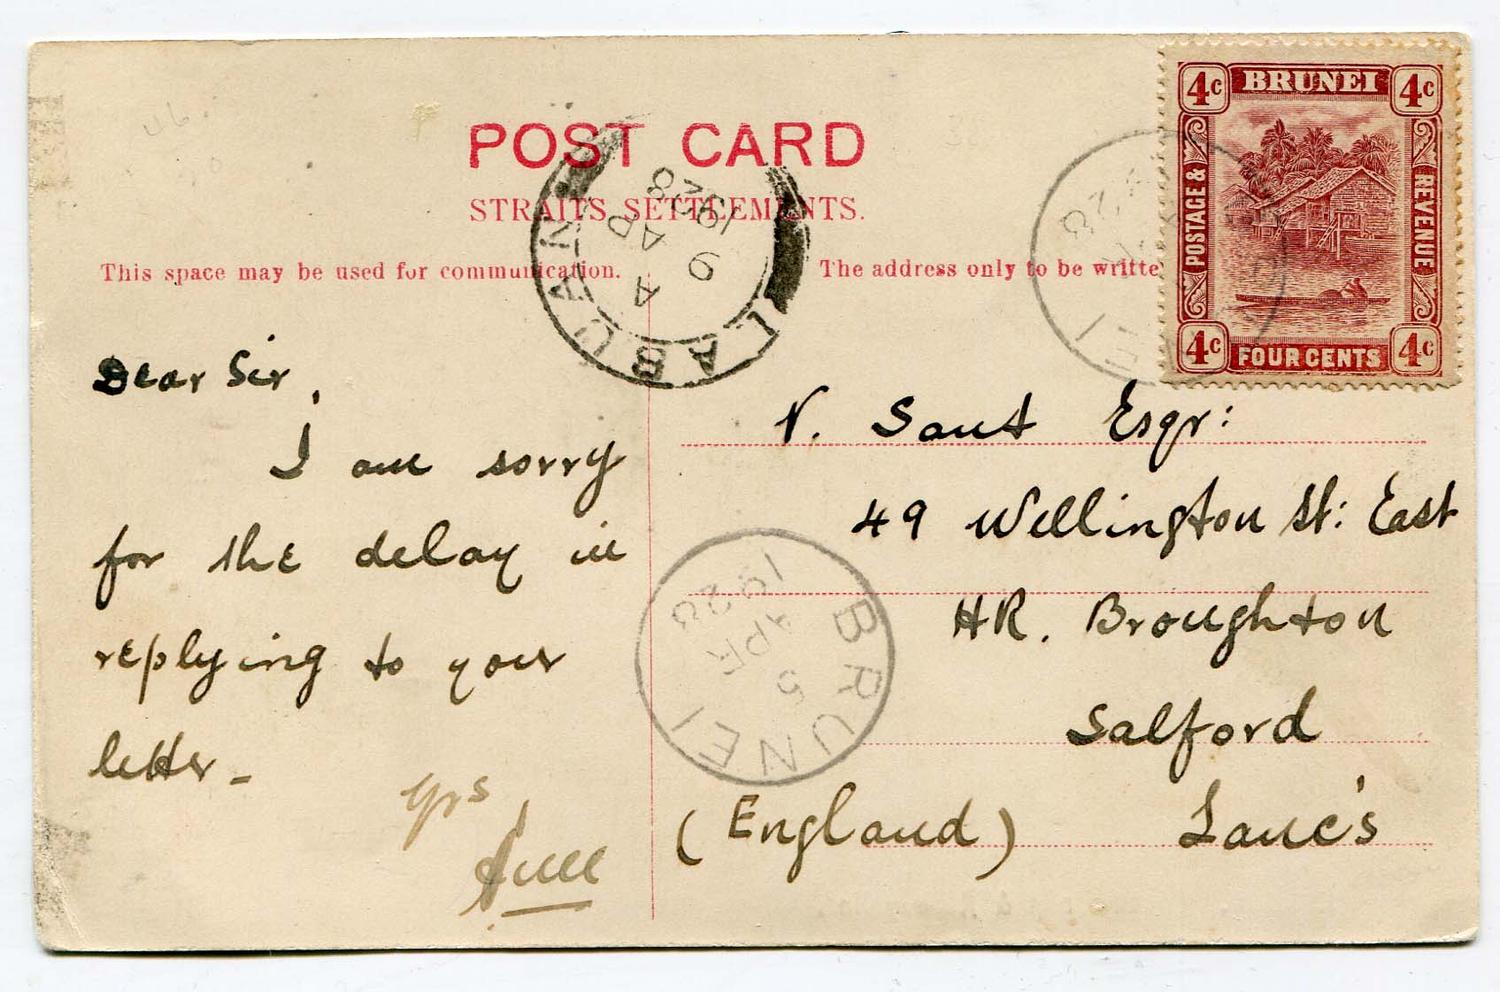 POST CARD
STRAITS SETTLEMENTS.
This space may be used for communication.
The address only to be writte
4c BRUNEI 4c
POSTAGE & REVENUE
4c FOUR CENTS 4c
LABUAN
A
9 AP
1928
28
EI
Dear Sir,
I am sorry
for the delay in
replying to your
letter_
yrs
49 Wellington St: East
HR. Broughton
Salford
Lanc's
(England)
Sant Esqr:
BRUNEI
5
APR
1928